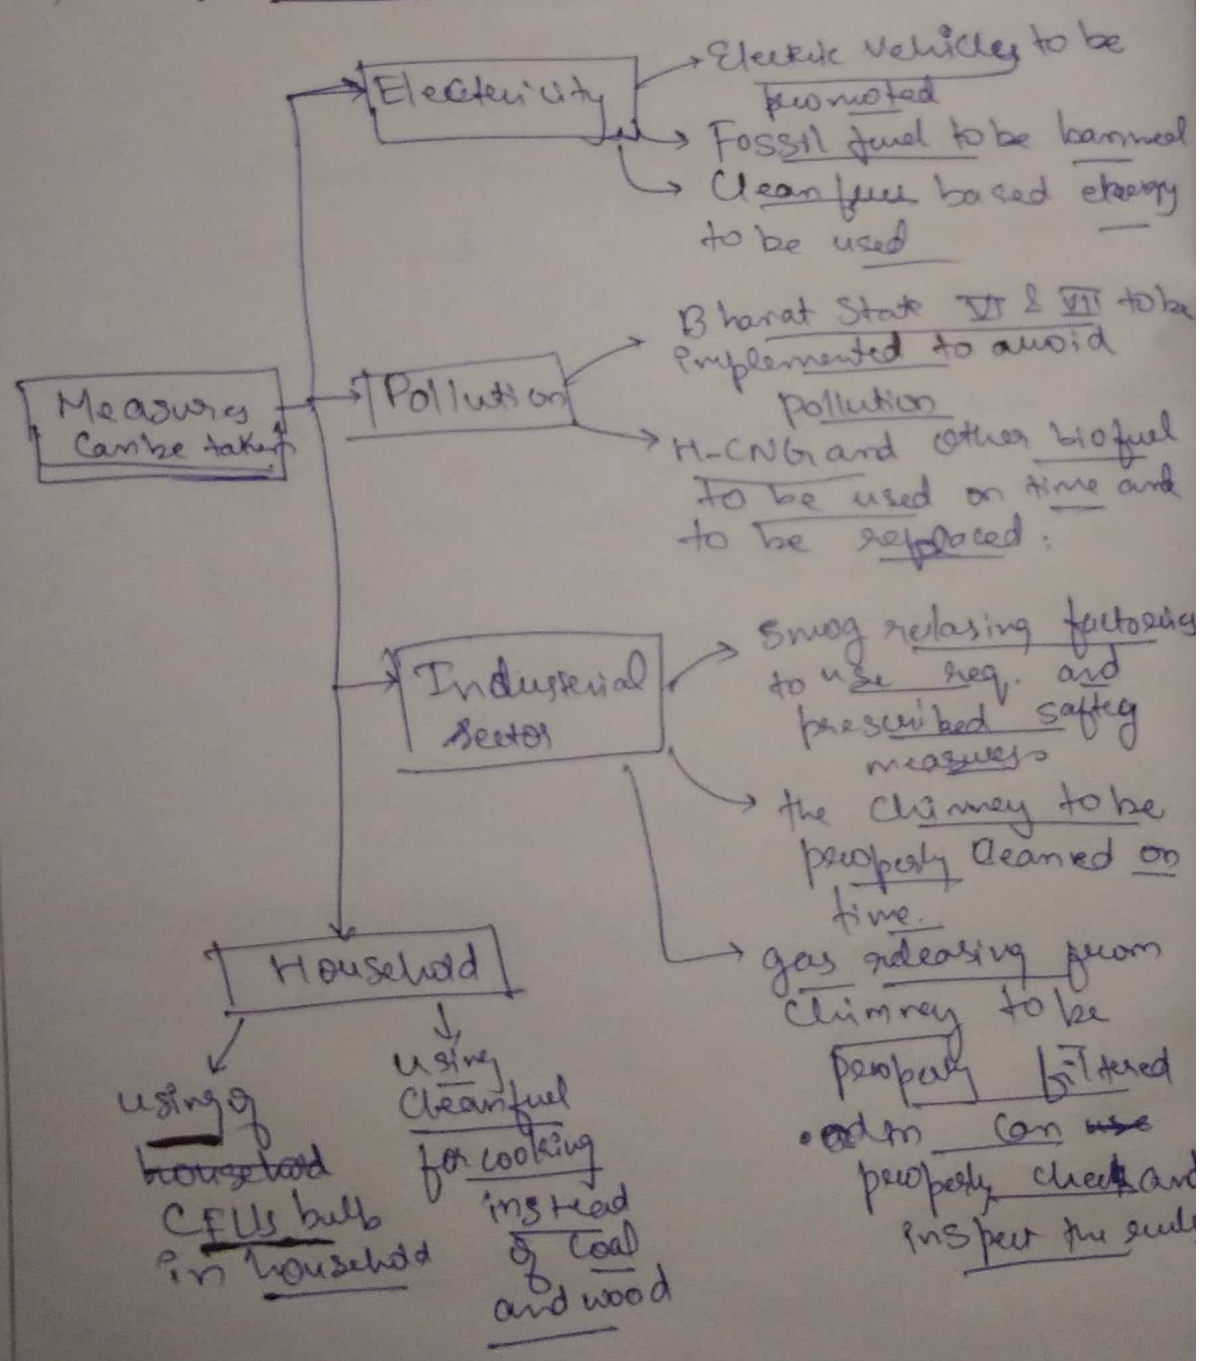 Electricity
Electric vehicles to be
promoted
Fossil fuel to be banned
Clean fuel based energy
to be used
Measures
Can be taken
Pollution
Bharat State VI & VII to be
implemented to avoid
pollution
H-CNG and other biofuel
to be used on time and
to be replaced.
Industrial
Sector
Smog relasing factories
to use req. and
prescribed saftey
measures
the chimney to be
properly cleaned on
time.
gas releasing from
Chimney to be
properly filtered
can use
properly check and
inspect the rule
Household
using of
household
bulb
in household
using
Clean fuel
for cooking
instead
of coal
and wood